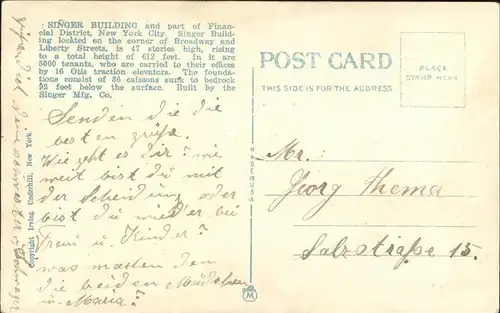 SINGER BUILDING and part of Finan-
cial District, New York City. Singer Build-
ing located on the corner of Broadway and
Liberty Streets, is 47 stories high, rising
to a total height of 612 feet. In it are
5000 tenants, who are carried to their offices
by 16 Otis traction elevators. The founda-
tions consist of 36 caissons sunk to bedrock
92 feet below the surface. Built by the
Singer Mfg. Co.
Senden dir die
besten grüße.
Wie geht es dir? wie
weit bist du mit
der Scheidung oder
bist du wieder bei
Frau u. Kinder?
was machen den
die beiden Mädchen
Maria?
Schwester u. Schwager
Copyright Irving Underhill, New York
MADE IN USA
POST CARD
THIS SIDE IS FOR THE ADDRESS
PLACE
STAMP HERE
Mr.
Georg Thema
Salzstraße 15.
M